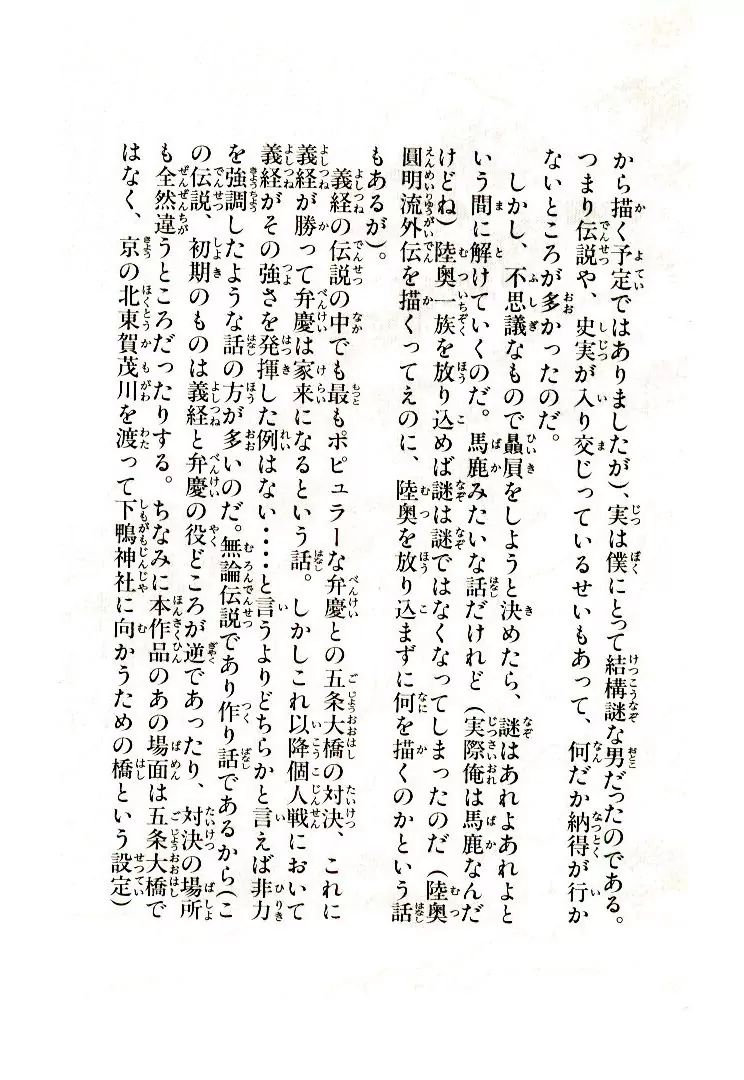 から描く予定ではありましたが)、実は僕にとって結構謎な男だったのである。
つまり伝説や、史実が入り交じっているせいもあって、何だか納得が行か
ないところが多かったのだ。
しかし、不思議なもので贔屓をしようと決めたら、謎はあれよあれよと
いう間に解けていくのだ。馬鹿みたいな話だけれど(実際俺は馬鹿なんだ
けどね)陸奥一族を放り込めば謎は謎ではなくなってしまったのだ(陸奥
圓明流外伝を描くってえのに、陸奥を放り込まずに何を描くのかという話
もあるが)。
義経の伝説の中でも最もポピュラーな弁慶との五条大橋の対決、これに
義経が勝って弁慶は家来になるという話。しかしこれ以降個人戦において
義経がその強さを発揮した例はない・・・・と言うよりどちらかと言えば非力
を強調したような話の方が多いのだ。無論伝説であり作り話であるから(こ
の伝説、初期のものは義経と弁慶の役どころが逆であったり、対決の場所
も全然違うところだったりする。ちなみに本作品のあの場面は五条大橋で
はなく、京の北東賀茂川を渡って下鴨神社に向かうための橋という設定)